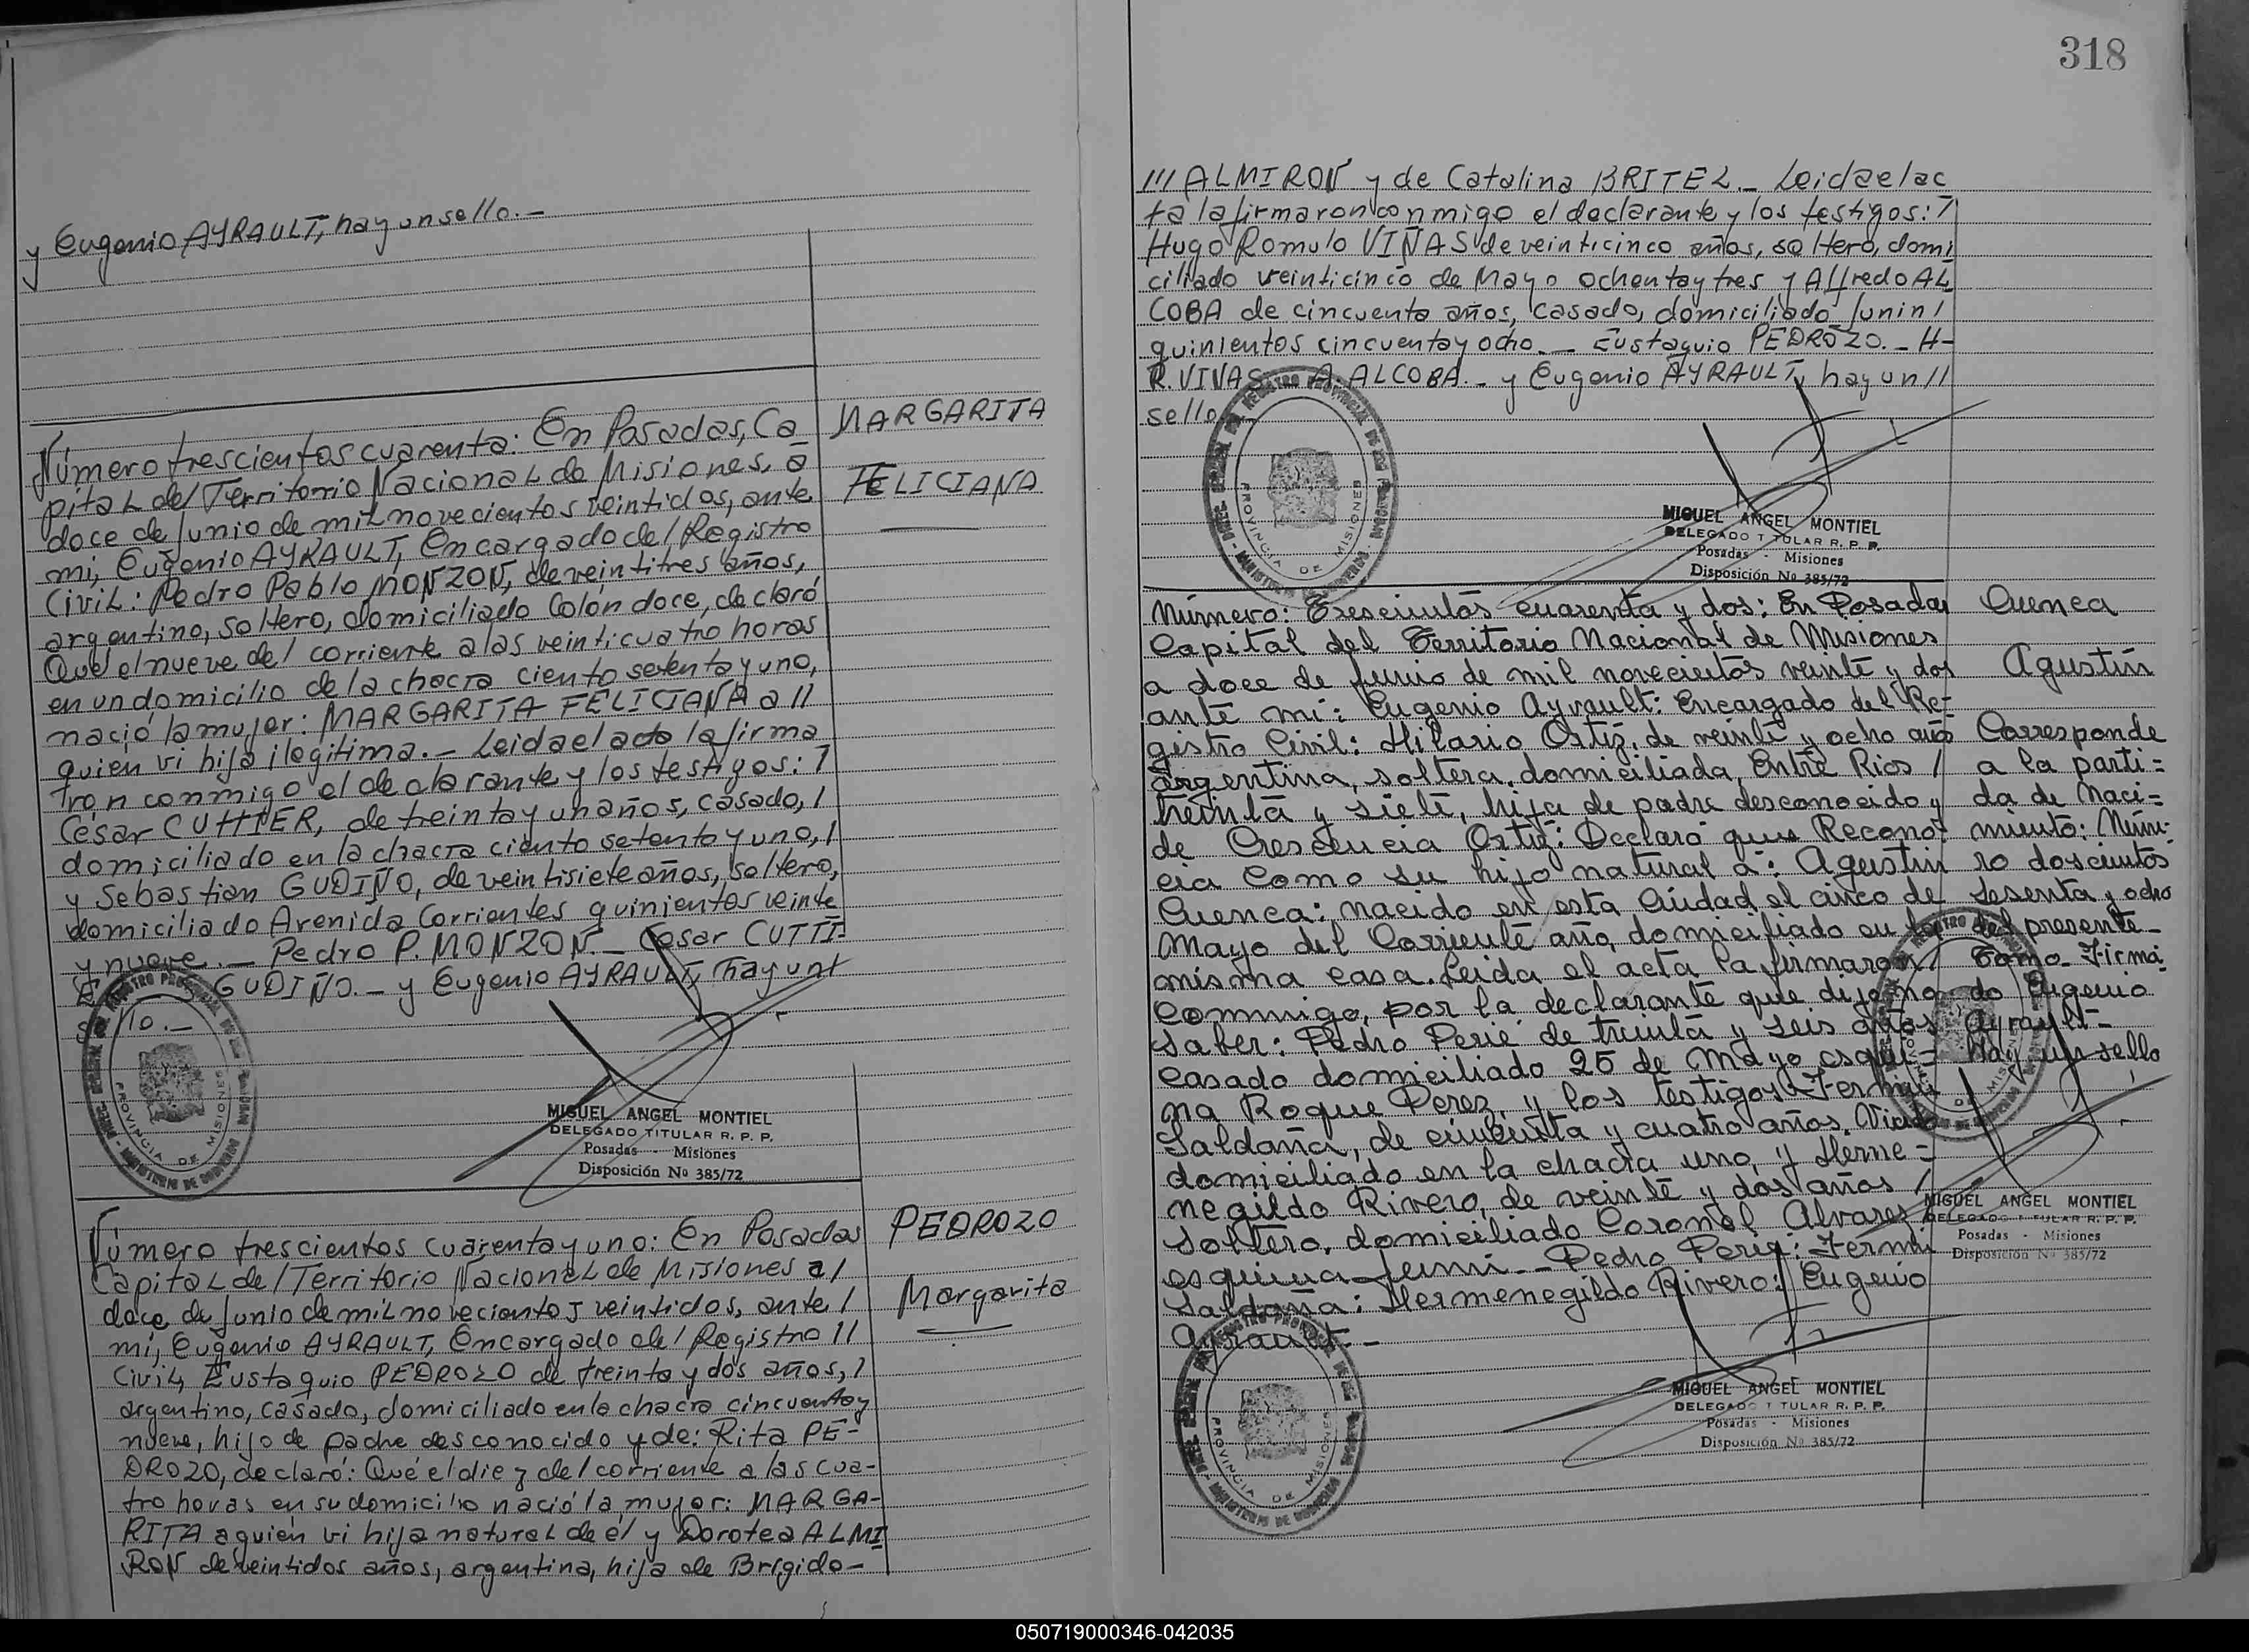 y Eugenio AYRAULT, hay un sello.—
Número trescientos cuarenta: En Posadas, Ca
pital del Territorio Nacional de Misiones, a
doce de Junio de mil novecientos veintidos, ante
mi, Eugenio AYRAULT, Encargado del Registro
Civil: Pedro Pablo MONZON, de veintitres años,
argentino, soltero, domiciliado Colón doce, declaró
Que el nueve del corriente a las veinticuatro horas
en un domicilio de la chacra ciento setenta y uno,
nació la mujer: MARGARITA FELICIANA a //
quien vi hija ilegitima.— Leida el acta la firma
ron conmigo el declarante y los testigos: /
César CUTTIER, de treinta y un años, casado, /
domiciliado en la chacra ciento setenta y uno, /
y Sebastian GUDIÑO, de veintisiete años, soltero,
domiciliado Avenida Corrientes quinientos veinte
y nueve.— Pedro P. MONZON.— Cesar CUTTI-
GUDIÑO.— y Eugenio AYRAULT, hay un/
sello.—
MARGARITA
FELICIANA
MIGUEL ANGEL MONTIEL
DELEGADO TITULAR R. P. P.
Posadas - Misiones
Disposición Nº 385/72
Número trescientos cuarenta y uno: En Posadas
Capital del Territorio Nacional de Misiones a/
doce de Junio de mil novecientos veintidos, ante /
mi, Eugenio AYRAULT, Encargado del Registro //
Civil, Eustaquio PEDROZO de treinta y dos años, /
argentino, casado, domiciliado en la chacra cincuenta y
nueve, hijo de padre desconocido y de: Rita PE-
DROZO, declaró: Qué el diez del corriente a las cua-
tro horas en su domicilio nació la mujer: MARGA-
RITA a quien vi hija natural de él y Dorotea ALMI
RON de veintidos años, argentina, hija de Brígido—
PEDROZO
Margarita
318
/// ALMIRON y de Catalina BRITEZ.— Leida el ac
ta la firmaron conmigo el declarante y los testigos: /
Hugo Romulo VIÑAS de veinticinco años, soltero, domi
ciliado veinticinco de Mayo ochenta y tres y Alfredo AL
COBA de cincuenta años, casado, domiciliado Junin /
quinientos cincuenta y ocho.— Eustaquio PEDROZO.— H-
R. VIÑAS A. ALCOBA.— y Eugenio AYRAULT, hay un //
sello
MIGUEL ANGEL MONTIEL
DELEGADO TITULAR R. P. P.
Posadas - Misiones
Disposición Nº 385/72
Número: Trescientos cuarenta y dos: En Posadas
Capital del Territorio Nacional de Misiones
a doce de junio de mil novecientos veinte y dos
ante mi: Eugenio Ayrault: Encargado del Re-
gistro Civil: Hilario Ortiz, de veinte y ocho años
Argentina, soltera, domiciliada, Entre Rios /
treinta y siete, hija de padre desconocido y
de Crescencia Ortiz: Declaró que Recono-
cia como su hijo natural a: Agustin
Cuenca: nacido en esta Ciudad el cinco de
Mayo del Corriente año, domiciliado en la
misma casa. Leida el acta la firmaron /
Conmigo, por la declarante que dijo no
Saber: Pedro Perié de treinta y seis años
Casado domiciliado 25 de Mayo esqui-
na Roque Perez, y los testigos Fermin
Saldaña, de cincuenta y cuatro años, Viudo
domiciliado en la chacra uno, y Herme-
negildo Rivero, de veinte y dos años /
Soltero, domiciliado Coronel Alvarez
esquina Junin.— Pedro Perié: Fermin
Saldaña: Hermenegildo Rivero: Eugenio
Ayrault.—
Cuenca
Agustin
Corresponde
a la parti-
da de Naci-
miento: Núme-
ro doscientos
Sesenta y ocho
del presente
Tomo. Firma
do Eugenio
Ayrault-
Hay un sello
MIGUEL ANGEL MONTIEL
DELEGADO TITULAR R. P. P.
Posadas - Misiones
Disposición Nº 385/72
MIGUEL ANGEL MONTIEL
DELEGADO TITULAR R. P. P.
Posadas - Misiones
Disposición Nº 385/72
050719000346-042035